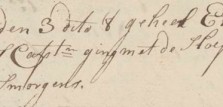 den 3 dito 8 geheel E
Capt:n ging met de Sloep
smorgens.